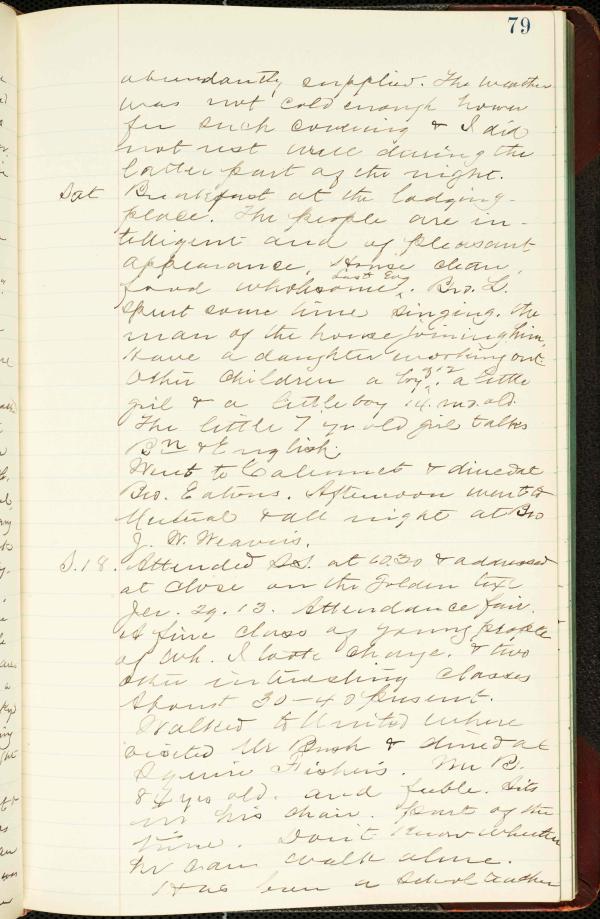 79
abundantly supplied. The weather
was not cold enough howev
for such covering & I did
not rest well during the
latter part of the night.
Sat Breakfast at the lodging-
place. The people are in-
telligent and of pleasant
appearance, House clean,
food wholesome. Last Evg Bro. L.
spent some time singing. the
man of the house joining him.
Have a daughter working out
Other children a boy 12 a little
girl & a little boy 14. mo. old.
The little 7 yr old girl talks
& English.
Went to Calumet & dined at
Bro. Eatons. Afternoon went to
Mutual & all night at Bro
J. W. Weavers.
S. 18. Attended S.S. at 10.30 & addressed
at close on the Golden text
Jer. 29. 13. Attendance fair.
A fine class of young people
of wh. I took charge. & two
other interesting classes
About 30-40 present.
Walked to United where
visited Mr Bush & dined at
Squire Fishers. Mr B.
84 yrs old. and feeble. Sits
in his chair. part of the
time. Don't know whether
he can walk alone.
Has been a school teacher